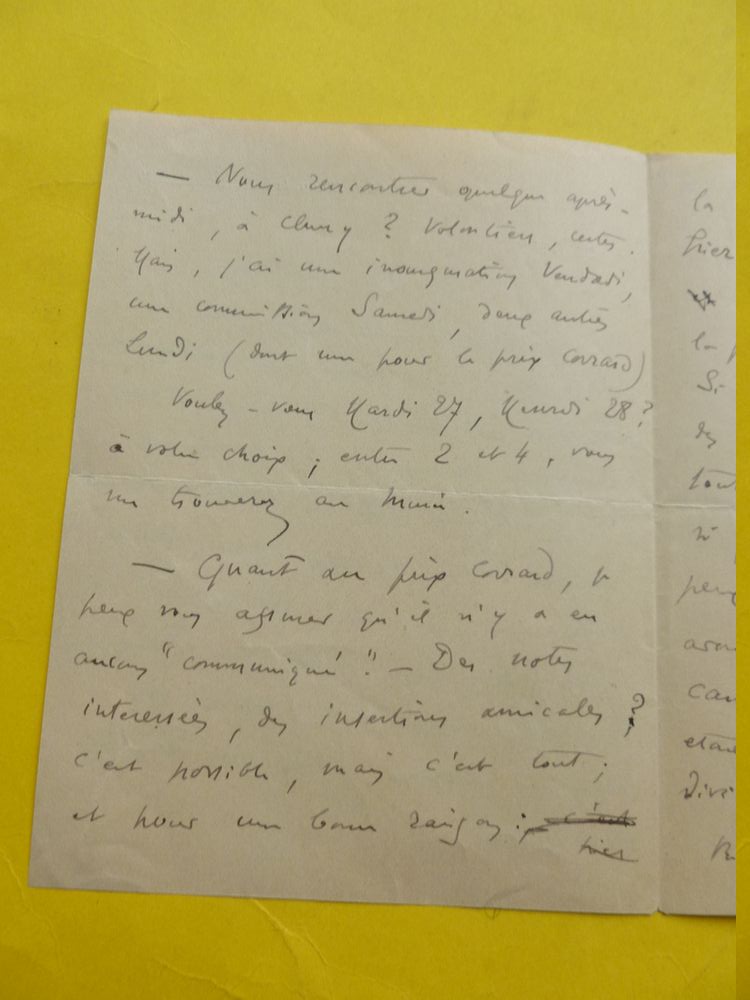 — Nous rencontrer quelque après-
midi, à Cluny ? Volontiers, certes.
Mais, j'ai une inauguration Vendredi,
une commission Samedi, deux autres
Lundi (dont une pour le prix Corrard)
Voulez-vous Mardi 27, Mercredi 28 ?
à votre choix ; entre 2 et 4, vous
me trouverez au Musée.
— Quant au prix Corrard, je
peux vous assurer qu'il n'y a eu
aucun "communiqué" — Des notes
intéressées, des insertions amicales ?
c'est possible, mais c'est tout ;
et pour une bonne raison : c'est
la
hier
la
Si
des
tout